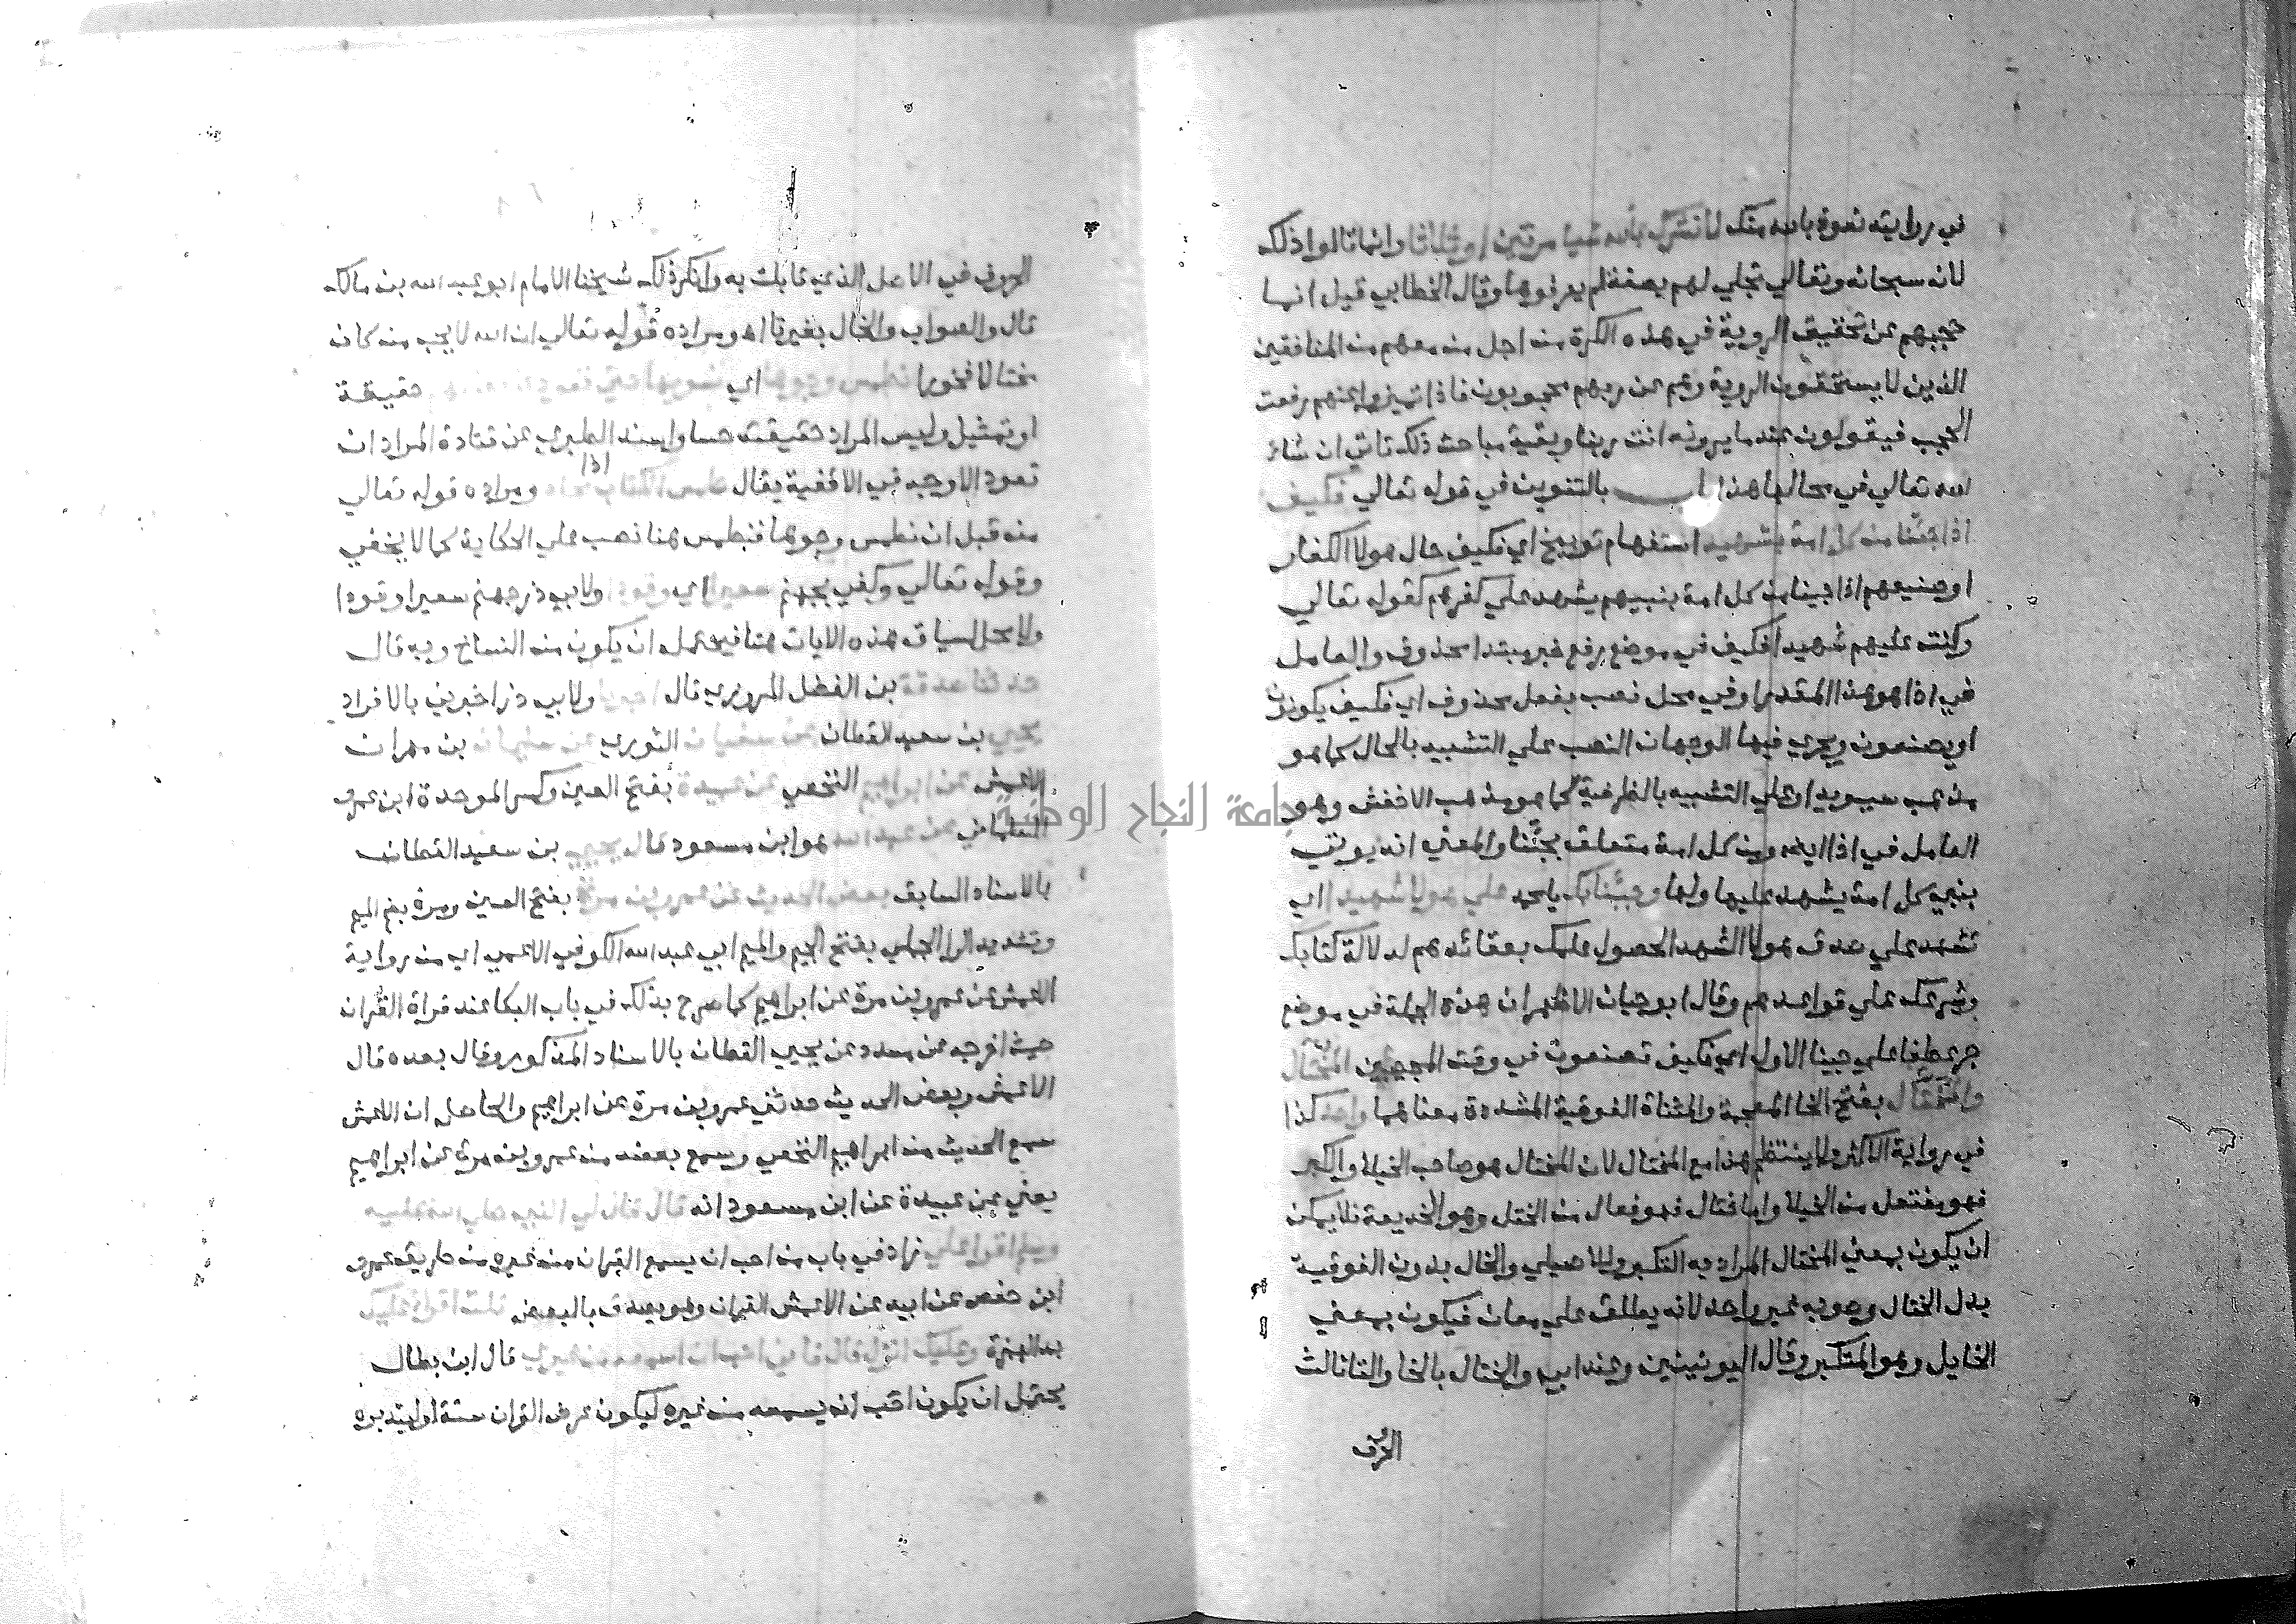 في روايته نعوذ بالله منك لا نشرك بالله شيا مرتين او ثلاثا وانما قالوا ذلك
لانه سبحانه وتعالي تجلي لهم بصفة لم يعرفوها وقال الخطابي قيل انما
حجبهم عن تحقيق الروية في هذه الكرة من اجل من معهم من المنافقين
الذين لا يستحقون الروية وهم عن ربهم محجوبون فاذا تميزوا عنهم رفعت
الحجب فيقولون عند ما يرونه انت ربنا وبقية مباحث ذلك تاتي ان شاء
الله تعالي في محالها هذا باب بالتنوين في قوله تعالي فكيف
اذا جئنا من كل امة بشهيد استفهام توبيخ اي فكيف حال هولا الكفار
او صنيعهم اذا جينا من كل امة بنبيهم يشهد علي كفرهم كقوله تعالي
وكنت عليهم شهيدا فكيف في موضع رفع خبر مبتدا محذوف والعامل
في اذا هو هذا المقدر او في محل نصب بفعل محذوف اي فكيف يكونون
او يصنعون ويجري فيها الوجهان النصب علي التشبيه بالحال كما هو
مذهب سيبويه او علي التشبيه بالظرفية كما هو مذهب الاخفش وهو
العامل في اذا ايضا ومن كل امة متعلق بجئنا والمعني انه يوتي
بنبي كل امة يشهد عليها ولها وجئنا بك يا محمد علي هولا شهيدا اي
تشهد علي صدق هولا الشهدا لحصول علمك بعقائدهم لدلالة كتابك
وشرعك علي قواعدهم وقال ابو حيان الاظهر ان هذه الجملة في موضع
جر عطفا علي جينا الاول اي فكيف تصنعون في وقت المجيئين المختال
والختال بفتح الخا المعجمة والمثناة الفوقية المشددة معناهما واحد كذا
في رواية الاكثر ولا ينتظم هذا مع المختال لان المختال هو صاحب الخيلا والكبر
فهو مفتعل من الخيلا واما ختال فهو فعال من الختل وهو الخديعة فلا يمكن
ان يكون بمعني المختال المراد به التكبر وللاصيلي والخال بدون الفوقية
بدل الختال وصوبه غير واحد لانه يطلق علي معان فيكون بمعني
الخايل وهو المتكبر وقال اليونيني وعند ابي والختال بالخا والتا ثالث
الحروف
الحروف في الاصل الذي قابلت به وانكر ذلك شيخنا الامام ابو عبد الله بن مالك
قال والصواب والخال بغير تا اه ومراده قوله تعالي ان الله لا يحب من كان
مختالا فخورا نطمس وجوها اي نسويها حتي تعود حقيقة
او تمثيل وليس المراد حقيقته حسا واسند الطبري عن قتادة المراد ان
تعود الاوجه في الاقفية يقال طمس الكتاب اذا محاه ومراده قوله تعالي
من قبل ان نطمس وجوها فنطمس هنا نصب علي الحكاية كما لا يخفي
وقوله تعالي وكفي بجهنم سعيرا اي وقودا ولابي ذر جهنم سعيرا وقودا
ولا محل لسياق هذه الايات هنا فيحتمل ان يكون من النساخ وبه قال
حدثنا صدقة بن الفضل المروزي قال اخبرنا ولابي ذر اخبرني بالافراد
يحيي بن سعيد القطان عن سفيان الثوري عن سليمان بن مهران
الاعمش عن ابراهيم النخعي عن عبيدة بفتح العين وكسر الموحدة ابن عمرو
السلماني عن عبد الله هو ابن مسعود قال يحيي بن سعيد القطان
بالاسناد السابق بعض الحديث عن عمرو بن مرة بفتح العين ومرة بضم الميم
وتشديد الرا الجملي بفتح الجيم والميم ابي عبد الله الكوفي الاعمي اي من رواية
الاعمش عن عمرو بن مرة عن ابراهيم كما صرح بذلك في باب البكا عند قراة القران
حيث اخرجه عن مسدد عن يحيي القطان بالاسناد المذكور وقال بعده قال
الاعمش وبعض الحديث حدثني عمرو بن مرة عن ابراهيم والحاصل ان الاعمش
سمع الحديث من ابراهيم النخعي وسمع بعضه من عمرو بن مرة عن ابراهيم
يعني عن عبيدة عن ابن مسعود انه قال قال لي النبي صلي الله عليه
وسلم اقرا علي زاد في باب من احب ان يسمع القران من غيره من طريق عمرو
ابن حفص عن ابيه عن الاعمش القران وهو يصدق بالبعض قلت اقرا عليك
بمد الهمزة وعليك انزل قال فاني احب ان اسمعه من غيري قال ابن بطال
يحتمل ان يكون احب ان يسمعه من غيره ليكون عرض القران سنة او ليتدبره
جامعة النجاح الوطنية